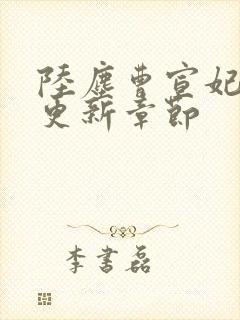 陸塵曹宣妃
更新章節
李書磊